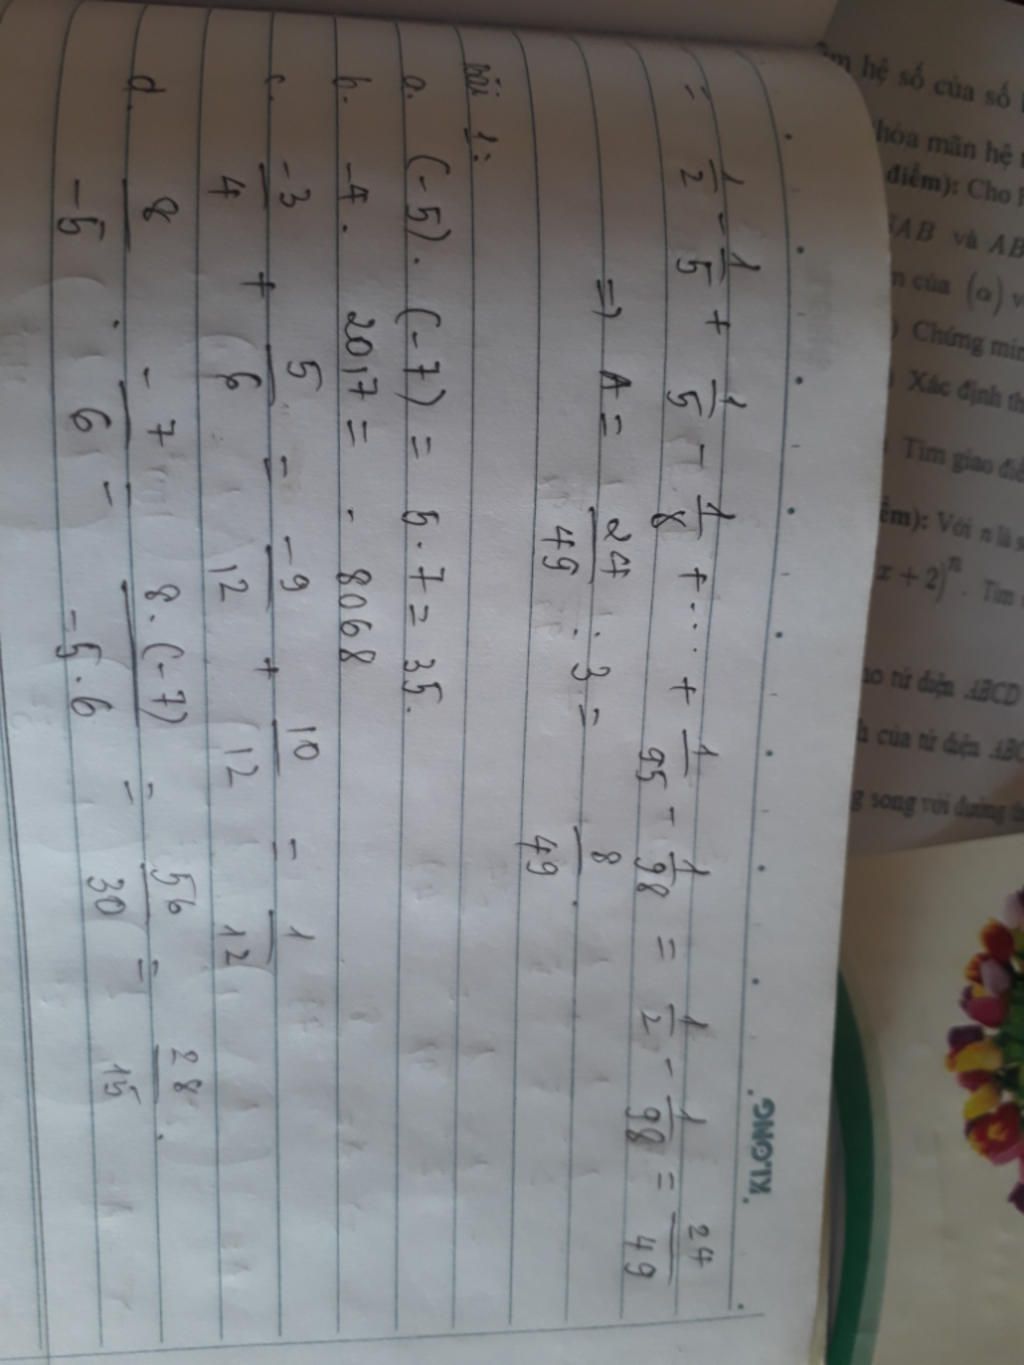 KLONG
= 1/2 - 1/5 + 1/5 - 1/8 + ... + 1/95 - 1/98 = 1/2 - 1/98 = 24/49
=> A = 24/49 : 3 = 8/49.
Bài 1:
a. (-5). (-7) = 5.7 = 35.
b. -4. 2017 = - 8068
c. -3/4 + 5/6 = -9/12 + 10/12 = 1/12
d. 8/-5 . -7/6 = 8.(-7)/-5.6 = 56/30 = 28/15.
hệ số của số
hỏa mãn hệ
điểm): Cho
AB và AB
của (α) v
Chứng min
Xác định th
Tìm giao điể
): Với n là s
x + 2)^n. Tìm
tứ diện ABCD
của tứ diện ABC
song với đường th